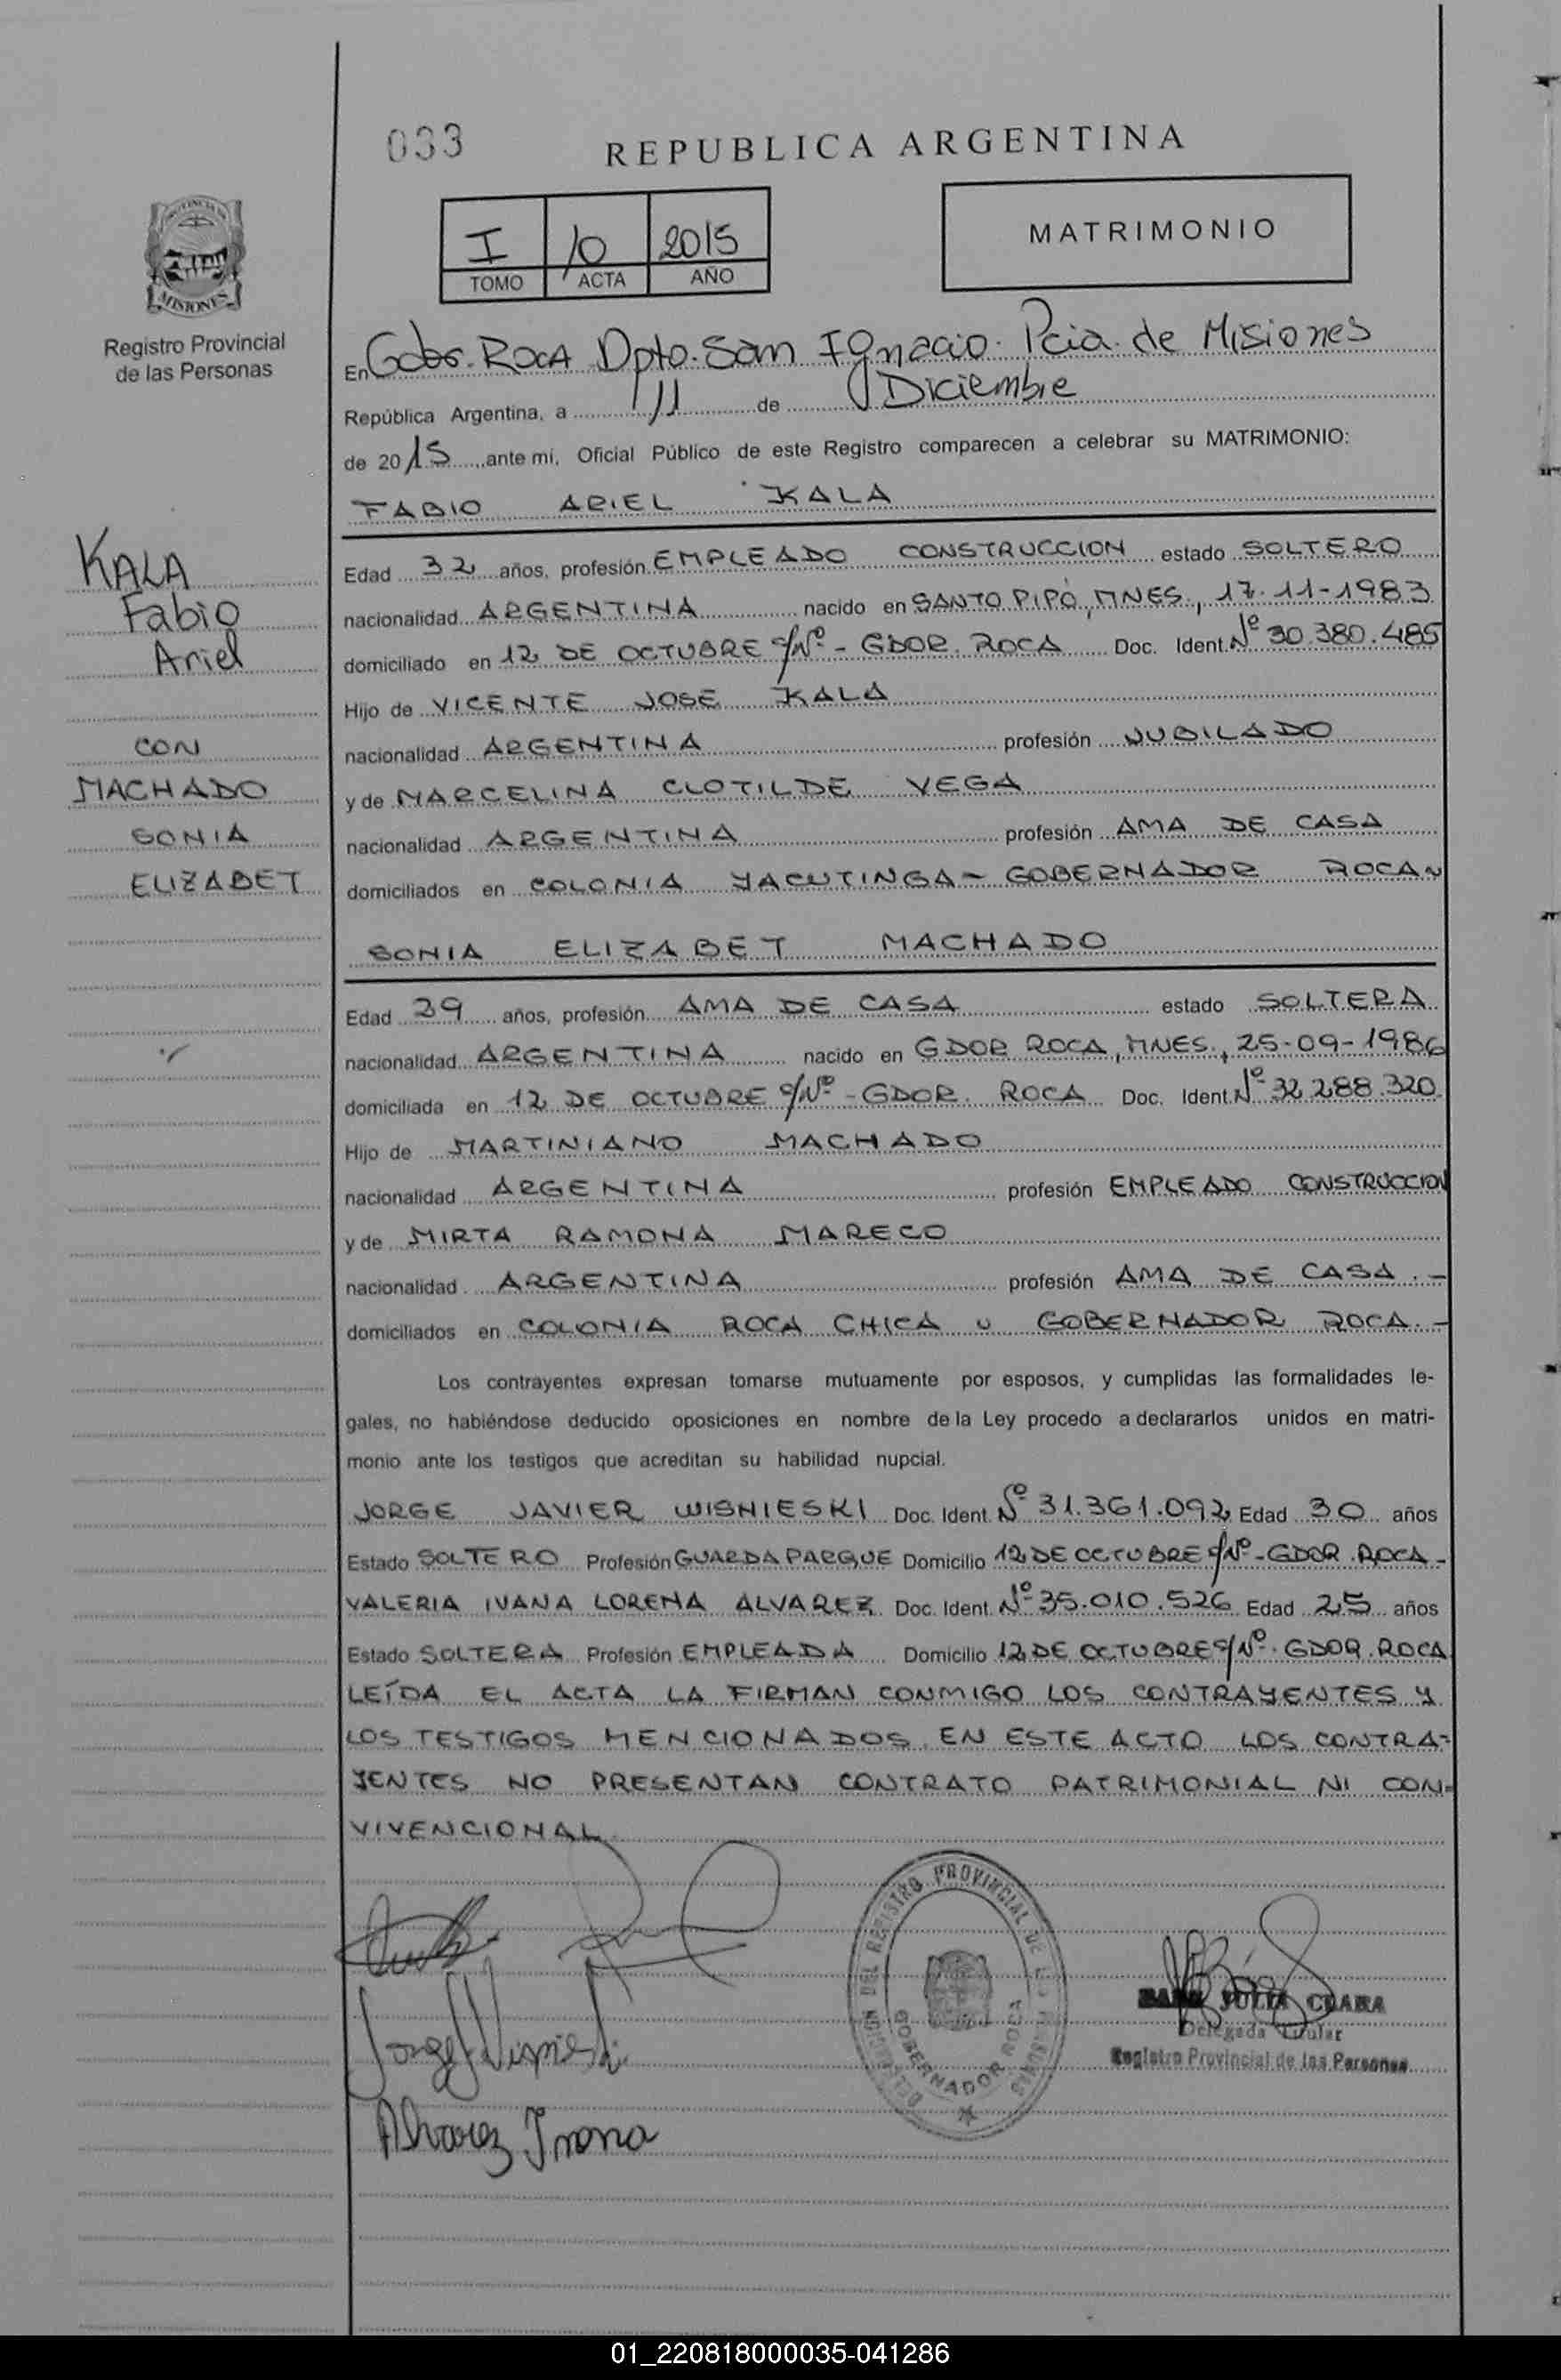 033
REPUBLICA ARGENTINA
I 10 2015
TOMO ACTA AÑO
MATRIMONIO
PROVINCIA DE
MISIONES
Registro Provincial
de las Personas
En Gobr. ROCA Dpto. San Ignacio. Pcia. de Misiones
República Argentina, a 11 de Diciembre
de 2015 ante mi, Oficial Público de este Registro comparecen a celebrar su MATRIMONIO:
FABIO ARIEL KALA
KALA
Fabio
Ariel
CON
MACHADO
SONIA
ELIZABET
Edad 32 años, profesión EMPLEADO CONSTRUCCION estado SOLTERO
nacionalidad ARGENTINA nacido en SANTO PIPÓ, MNES., 17-11-1983
domiciliado en 12 DE OCTUBRE S/Nº - GDOR. ROCA Doc. Ident. Nº 30.380.485
Hijo de VICENTE JOSE KALA
nacionalidad ARGENTINA profesión JUBILADO
y de MARCELINA CLOTILDE VEGA
nacionalidad ARGENTINA profesión AMA DE CASA
domiciliados en COLONIA YACUTINGA - GOBERNADOR ROCA
SONIA ELIZABET MACHADO
Edad 39 años, profesión AMA DE CASA estado SOLTERA
nacionalidad ARGENTINA nacido en GDOR ROCA, MNES., 25-09-1986
domiciliada en 12 DE OCTUBRE S/Nº - GDOR. ROCA Doc. Ident. Nº 32.288.320
Hijo de MARTINIANO MACHADO
nacionalidad ARGENTINA profesión EMPLEADO CONSTRUCCION
y de MIRTA RAMONA MARECO
nacionalidad ARGENTINA profesión AMA DE CASA.-
domiciliados en COLONIA ROCA CHICA GOBERNADOR ROCA.-
Los contrayentes expresan tomarse mutuamente por esposos, y cumplidas las formalidades le-
gales, no habiéndose deducido oposiciones en nombre de la Ley procedo a declararlos unidos en matri-
monio ante los testigos que acreditan su habilidad nupcial.
JORGE JAVIER WISNIESKI Doc. Ident. Nº 31.361.092 Edad 30 años
Estado SOLTERO Profesión GUARDAPARQUE Domicilio 12 DE OCTUBRE S/Nº - GDOR. ROCA -
VALERIA IVANA LORENA ALVAREZ Doc. Ident. Nº 35.010.526 Edad 25 años
Estado SOLTERA Profesión EMPLEADA Domicilio 12 DE OCTUBRE S/Nº. GDOR. ROCA
LEÍDA EL ACTA LA FIRMAN CONMIGO LOS CONTRAYENTES Y
LOS TESTIGOS MENCIONADOS. EN ESTE ACTO LOS CONTRA-
YENTES NO PRESENTAN CONTRATO PATRIMONIAL NI CON-
VIVENCIONAL
DELEGACION DEL REGISTRO PROVINCIAL DE LAS PERSONAS
GOBERNADOR ROCA
JULIA CLARA
Delegada Titular
Registro Provincial de las Personas
Jorge Wisnieski
Alvarez Ivana
01_220818000035-041286